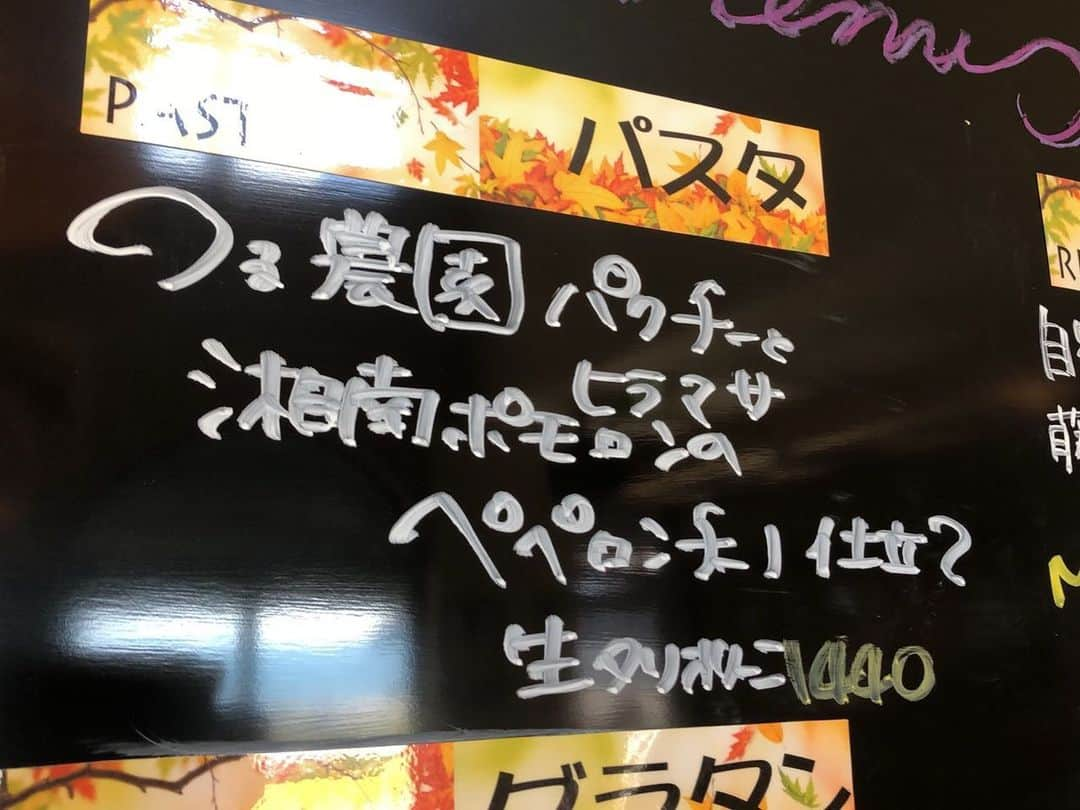 menu
PAST パスタ
つる農園 パクチーと
湘南ポモロンの
ヒラマサ
ペペロンチーノ仕立て
生タリオリーニ 1440
グラタン